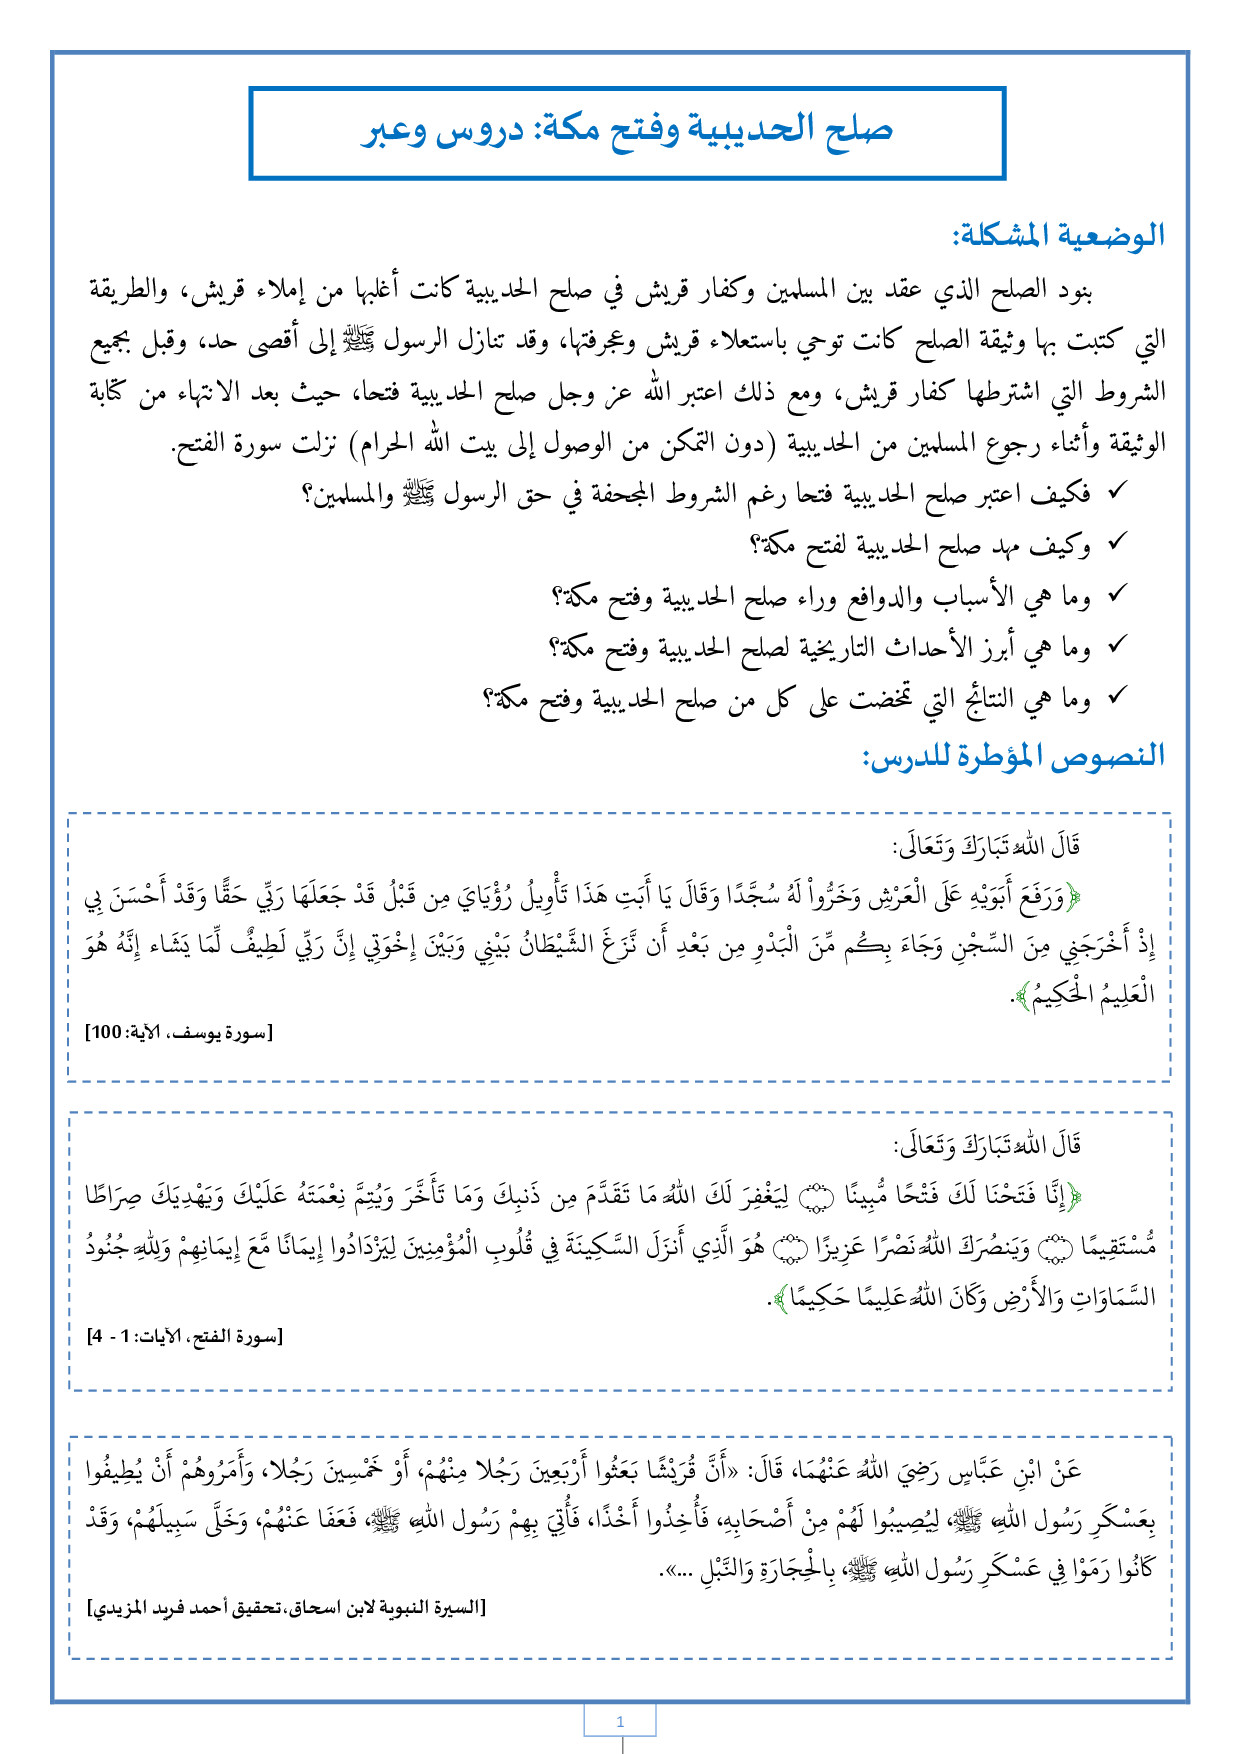 صلح الحديبية وفتح مكة: دروس وعبر
الوضعية المشكلة:
بنود الصلح الذي عقد بين المسلمين وكفار قريش في صلح الحديبية كانت أغلبها من إملاء قريش، والطريقة
التي كتبت بها وثيقة الصلح كانت توحي باستعلاء قريش وعجرفتها، وقد تنازل الرسول ﷺ إلى أقصى حد، وقبل بجميع
الشروط التي اشترطها كفار قريش، ومع ذلك اعتبر الله عز وجل صلح الحديبية فتحا، حيث بعد الانتهاء من كتابة
الوثيقة وأثناء رجوع المسلمين من الحديبية (دون التمكن من الوصول إلى بيت الله الحرام) نزلت سورة الفتح.
✓ فكيف اعتبر صلح الحديبية فتحا رغم الشروط المجحفة في حق الرسول ﷺ والمسلمين؟
✓ وكيف مهد صلح الحديبية لفتح مكة؟
✓ وما هي الأسباب والدوافع وراء صلح الحديبية وفتح مكة؟
✓ وما هي أبرز الأحداث التاريخية لصلح الحديبية وفتح مكة؟
✓ وما هي النتائج التي تمخضت على كل من صلح الحديبية وفتح مكة؟
النصوص المؤطرة للدرس:
قَالَ اللهُ تَبَارَكَ وَتَعَالَى:
﴿وَرَفَعَ أَبَوَيْهِ عَلَى الْعَرْشِ وَخَرُّواْ لَهُ سُجَّدًا وَقَالَ يَا أَبَتِ هَذَا تَأْوِيلُ رُؤْيَايَ مِن قَبْلُ قَدْ جَعَلَهَا رَبِّي حَقًّا وَقَدْ أَحْسَنَ بِي
إِذْ أَخْرَجَنِي مِنَ السِّجْنِ وَجَاءَ بِكُم مِّنَ الْبَدْوِ مِن بَعْدِ أَن نَّزَغَ الشَّيْطَانُ بَيْنِي وَبَيْنَ إِخْوَتِي إِنَّ رَبِّي لَطِيفٌ لِّمَا يَشَاء إِنَّهُ هُوَ
الْعَلِيمُ الْحَكِيمُ﴾.
[سورة يوسف، الآية: 100]
قَالَ اللهُ تَبَارَكَ وَتَعَالَى:
﴿إِنَّا فَتَحْنَا لَكَ فَتْحًا مُّبِينًا ۝ لِيَغْفِرَ لَكَ اللهُ مَا تَقَدَّمَ مِن ذَنبِكَ وَمَا تَأَخَّرَ وَيُتِمَّ نِعْمَتَهُ عَلَيْكَ وَيَهْدِيَكَ صِرَاطًا
مُّسْتَقِيمًا ۝ وَيَنصُرَكَ اللهُ نَصْرًا عَزِيزًا ۝ هُوَ الَّذِي أَنزَلَ السَّكِينَةَ فِي قُلُوبِ الْمُؤْمِنِينَ لِيَزْدَادُوا إِيمَانًا مَّعَ إِيمَانِهِمْ وَلِلهِ جُنُودُ
السَّمَاوَاتِ وَالأَرْضِ وَكَانَ اللهُ عَلِيمًا حَكِيمًا﴾.
[سورة الفتح، الآيات: 1 - 4]
عَنْ ابْنِ عَبَّاسٍ رَضِيَ اللهُ عَنْهُمَا، قَالَ: «أَنَّ قُرَيْشًا بَعَثُوا أَرْبَعِينَ رَجُلا مِنْهُمْ، أَوْ خَمْسِينَ رَجُلا، وَأَمَرُوهُمْ أَنْ يُطِيفُوا
بِعَسْكَرِ رَسُول اللهِ ﷺ، لِيُصِيبُوا لَهُمْ مِنْ أَصْحَابِهِ، فَأُخِذُوا أَخْذًا، فَأُتِيَ بِهِمْ رَسُول اللهِ ﷺ، فَعَفَا عَنْهُمْ، وَخَلَّى سَبِيلَهُمْ، وَقَدْ
كَانُوا رَمَوْا فِي عَسْكَرِ رَسُول اللهِ ﷺ، بِالْحِجَارَةِ وَالنَّبْلِ ...».
[السيرة النبوية لابن اسحاق،تحقيق أحمد فريد المزيدي]
1